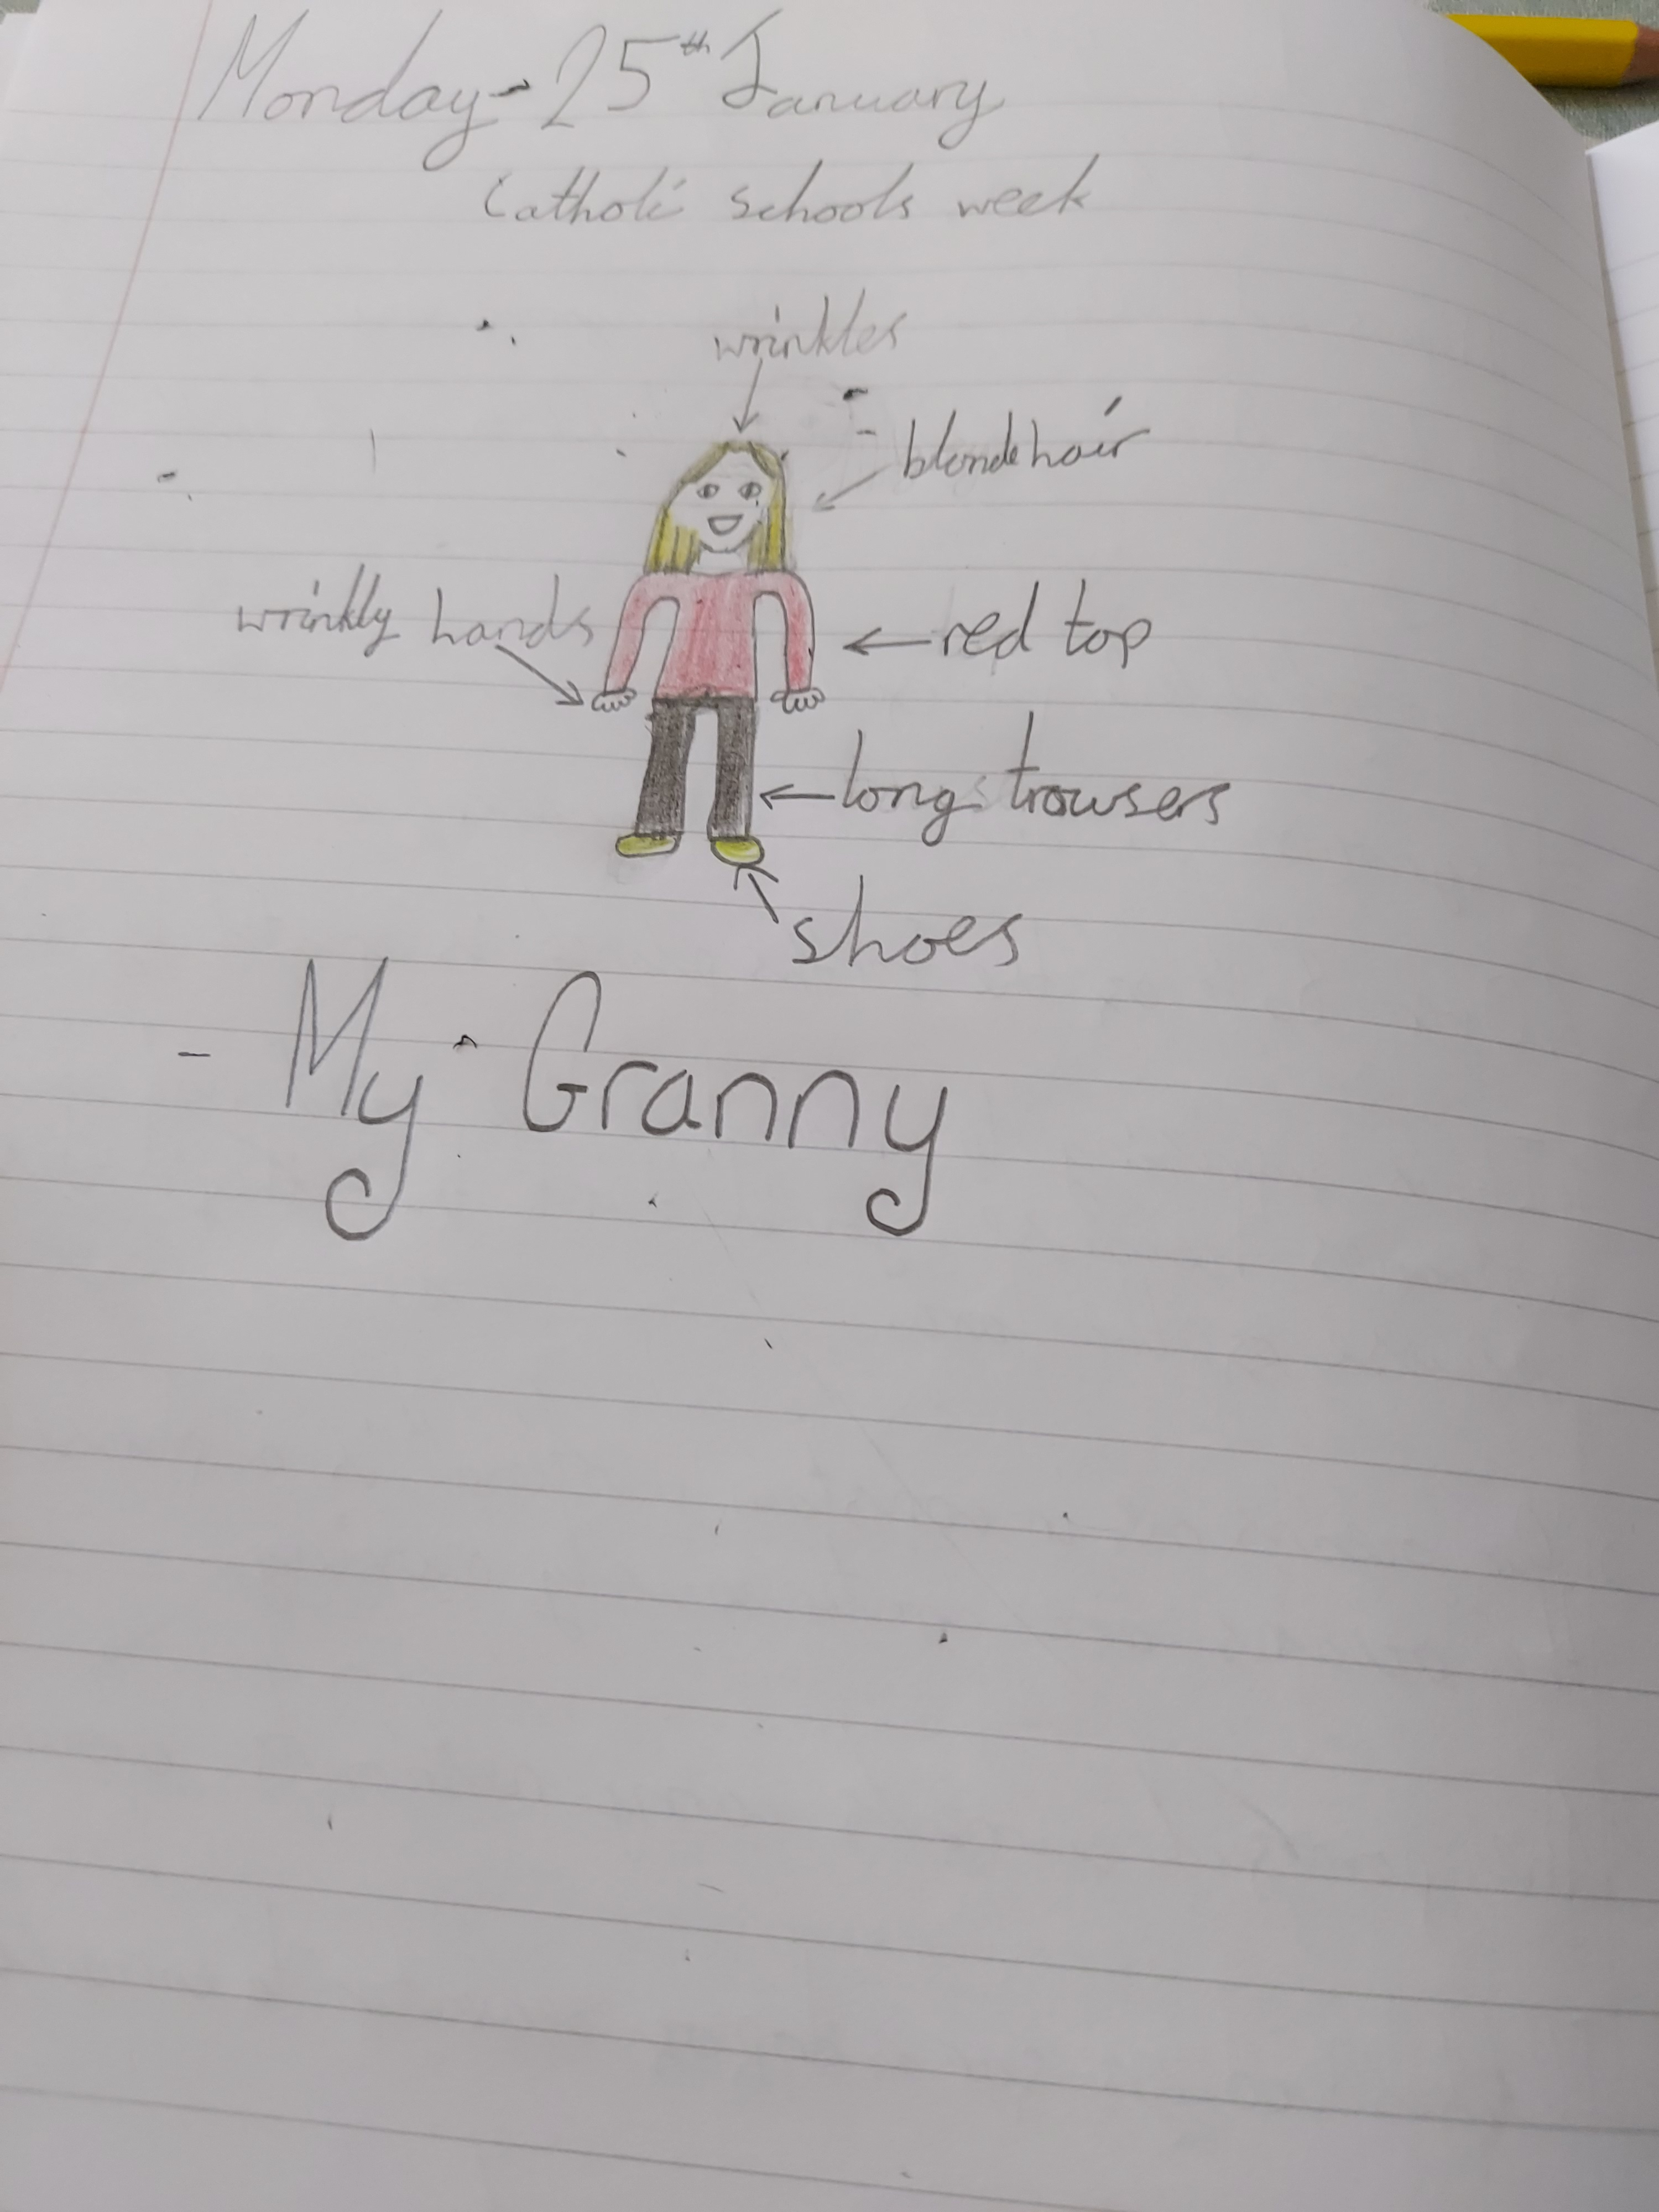 Monday - 25th January
Catholic schools week
wrinkles
blonde hair
wrinkly hands
red top
long trowsers
shoes
- My Granny